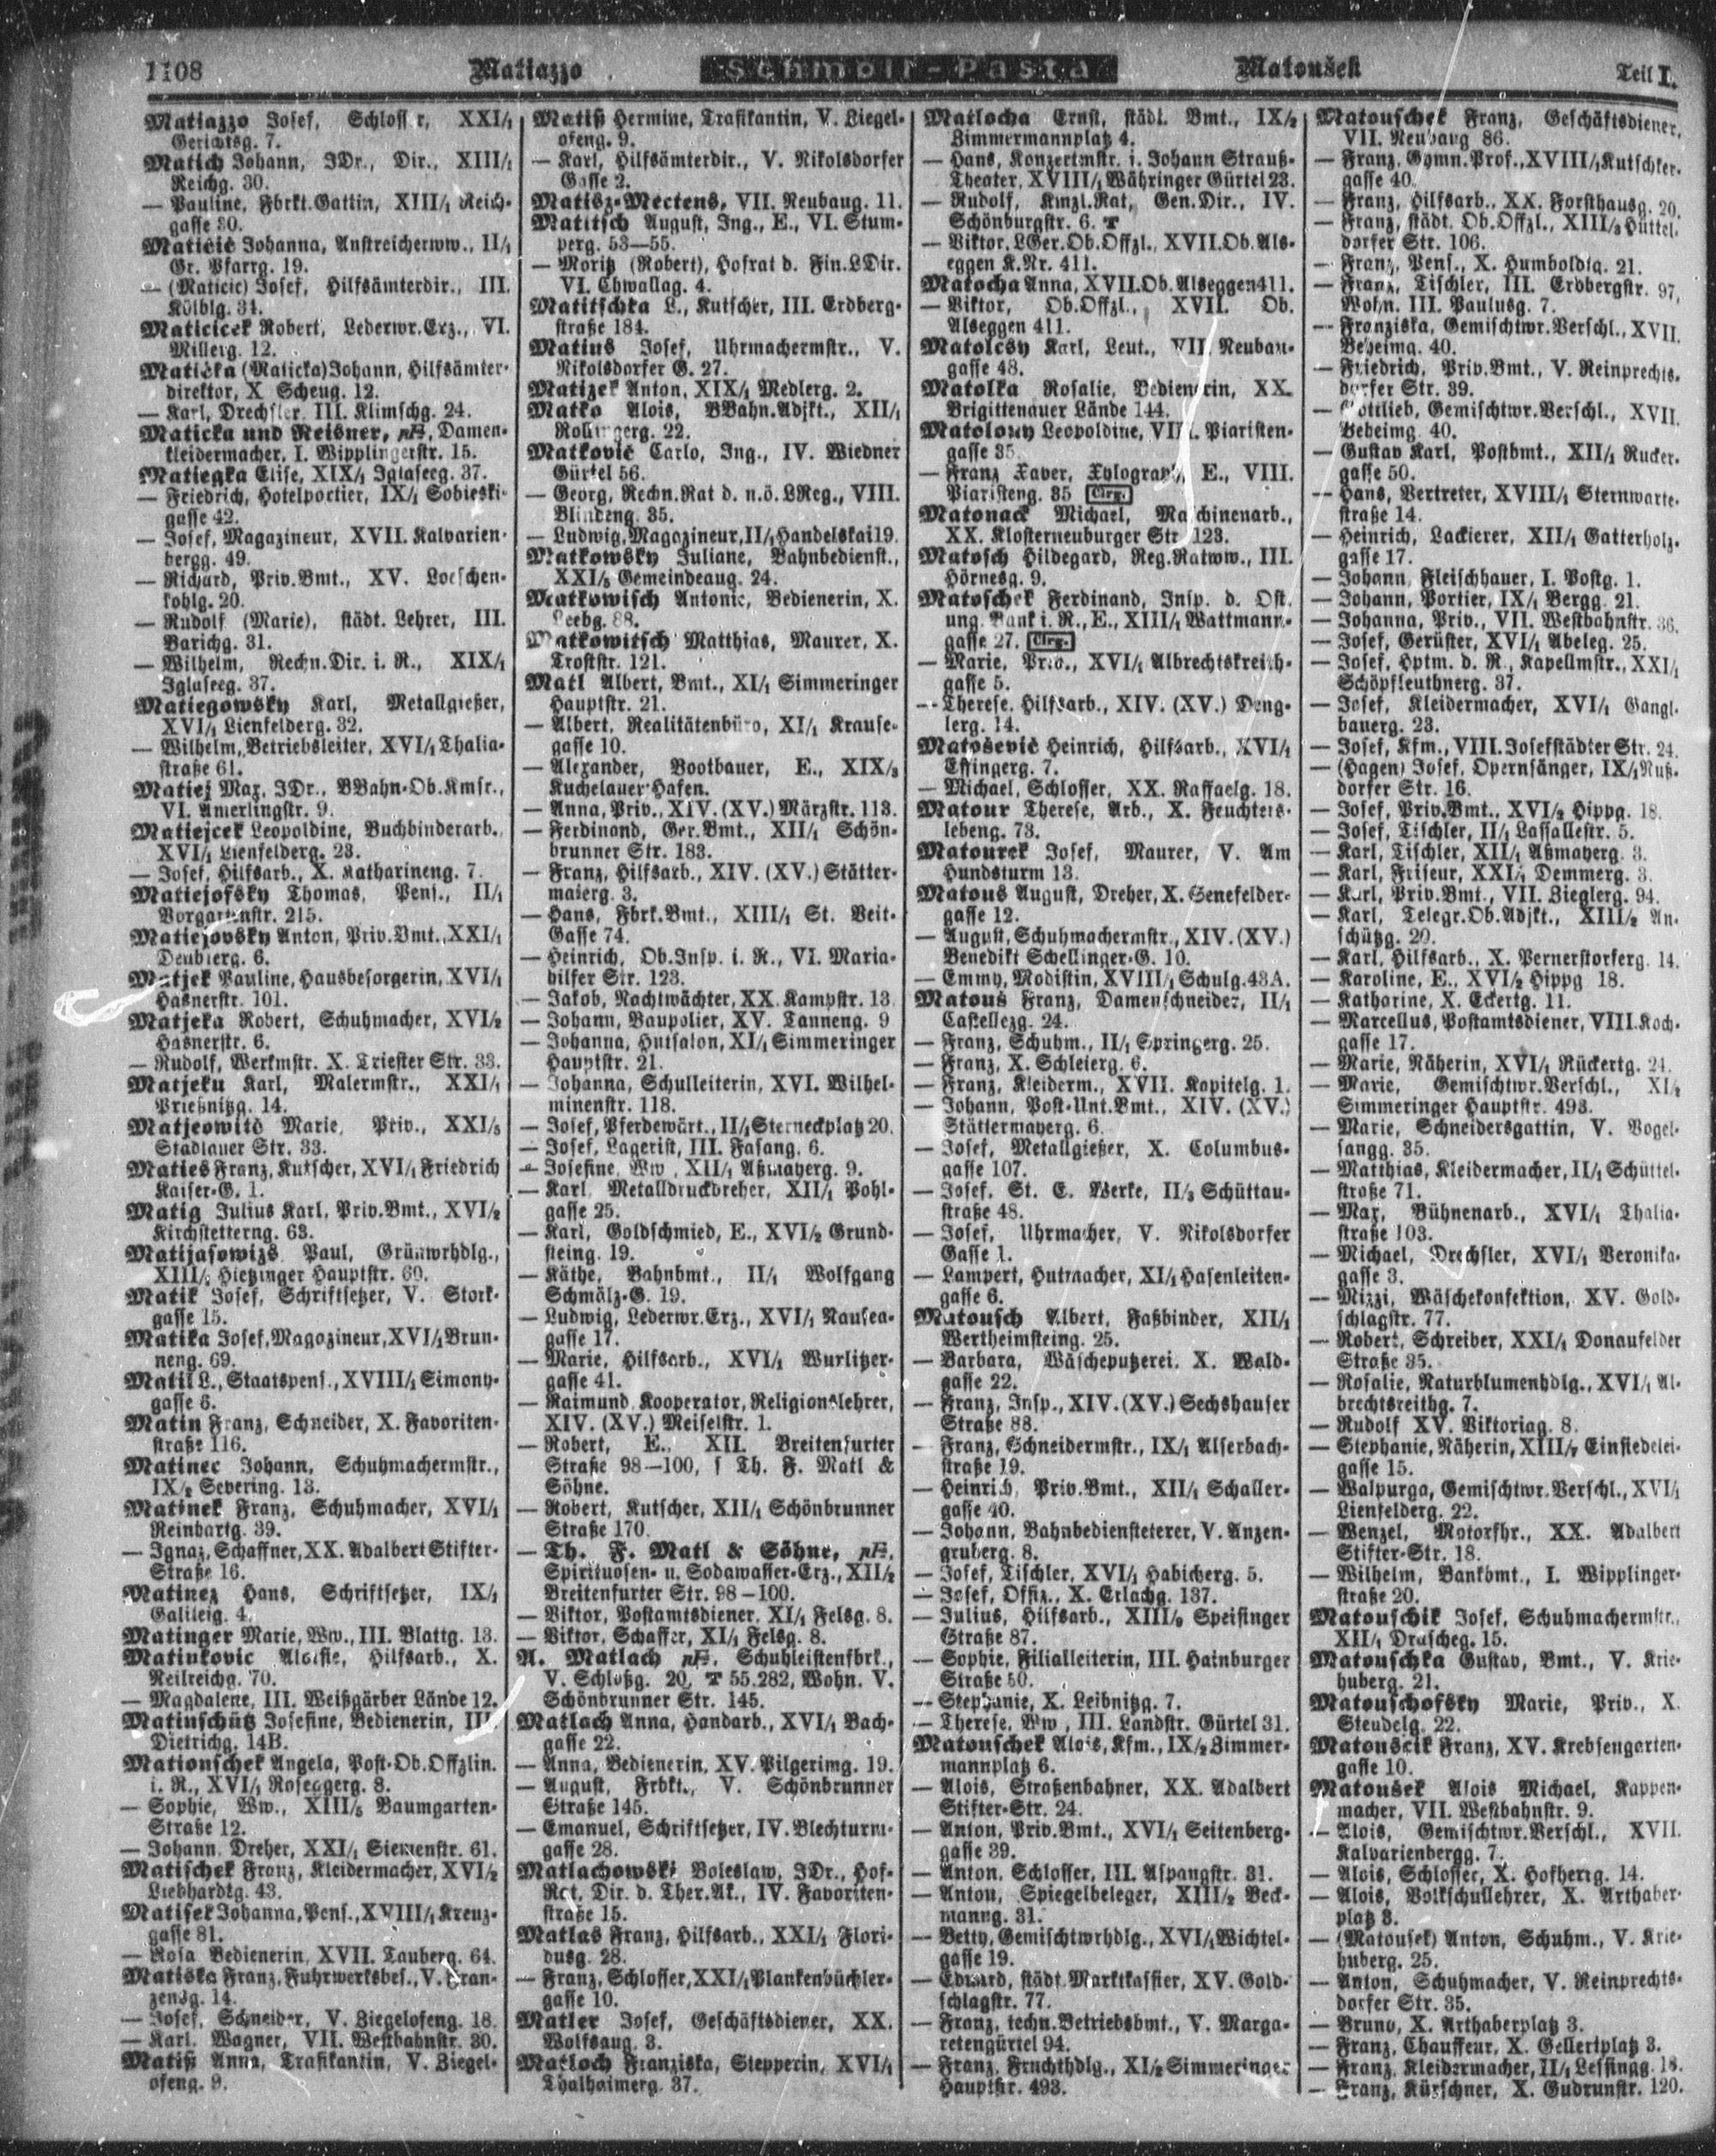 1108 Matiazzo Schmoll-Pasta Matoušek Teil I.
Matiazzo Josef, Schlosser, XXI/1
Gerichtsg. 7.
Matich Johann, JDr., Dir., XIII/1
Reichg. 30.
— Pauline, Fbrkt.Gattin, XIII/1 Reich-
gasse 30.
Matičić Johanna, Anstreicherww., II/1
Gr. Pfarrg. 19.
— (Maticic) Josef, Hilfsämterdir., III.
Kölblg. 31.
Maticicek Robert, Lederwr.Erz., VI.
Millerg. 12.
Matička (Maticka) Johann, Hilfsämter-
direktor, X Scheug. 12.
— Karl, Drechsler. III. Klimschg. 24.
Maticka und Reisner, Damen-
kleidermacher, I. Wipplingerstr. 15.
Matiegka Elise, XIX/1 Iglaseeg. 37.
— Friedrich, Hotelportier, IX/1 Sobieski-
gasse 42.
— Josef, Magazineur, XVII. Kalvarien-
bergg. 49.
— Richard, Priv.Bmt., XV. Loeschen-
kohlg. 20.
— Rudolf (Marie), städt. Lehrer, III.
Barichg. 31.
— Wilhelm, Rechn.Dir. i. R., XIX/1
Iglaseeg. 37.
Matiegowsky Karl, Metallgießer,
XVI/1 Lienfelderg. 32.
— Wilhelm, Betriebsleiter, XVI/1 Thalia-
straße 61.
Matiej Max, JDr., BBahn-Ob.Kmsr.,
VI. Amerlingstr. 9.
Matiejcek Leopoldine, Buchbinderarb.,
XVI/1 Lienfelderg. 23.
— Josef, Hilfsarb., X. Katharineng. 7.
Matiejofsky Thomas, Pens., II/1
Vorgartenstr. 215.
Matiejovsky Anton, Priv.Bmt., XXI/1
Deublerg. 6.
Matjek Pauline, Hausbesorgerin, XVI/1
Hasnerstr. 101.
Matjeka Robert, Schuhmacher, XVI/2
Hasnerstr. 6.
— Rudolf, Werkmstr. X. Triester Str. 33.
Matjeku Karl, Malermstr., XXI/1
Prießnitzg. 14.
Matjeowitc Marie, Priv., XXI/5
Stadlauer Str. 33.
Maties Franz, Kutscher, XVI/1 Friedrich
Kaiser-G. 1.
Matig Julius Karl, Priv.Bmt., XVI/2
Kirchstetterng. 63.
Matijasowizs Paul, Grünwrhdlg.,
XIII/ Hietzinger Hauptstr. 60.
Matik Josef, Schriftsetzer, V. Stork-
gasse 15.
Matika Josef, Magazineur, XVI/1 Brun-
neng. 69.
Matil L., Staatspens., XVIII/1 Simony-
gasse 6.
Matin Franz, Schneider, X. Favoriten-
straße 116.
Matinec Johann, Schuhmachermstr.,
IX/2 Severing. 13.
Matinek Franz, Schuhmacher, XVI/1
Reinhartg. 39.
— Ignaz, Schaffner, XX. Adalbert Stifter-
Straße 16.
Matinez Hans, Schriftsetzer, IX/1
Galileig. 4.
Matinger Marie, Ww., III. Blattg. 13.
Matinkovic Aloisie, Hilfsarb., X.
Neilreichg. 70.
— Magdalene, III. Weißgärber Lände 12.
Matinschütz Josefine, Bedienerin, III
Dietrichg. 14B.
Mationschek Angela, Post-Ob.Offzlin.
i. R., XVI/1 Roseggerg. 8.
— Sophie, Ww., XIII/5 Baumgarten-
Straße 12.
— Johann, Dreher, XXI/1 Siemenstr. 61.
Matischek Franz, Kleidermacher, XVI/2
Liebhardtg. 43.
Matisek Johanna, Pens., XVIII/1 Kreuz-
gasse 81.
— Rosa Bedienerin, XVII. Tauberg. 64.
Matiska Franz, Fuhrwerksbes., V. Gran-
zendg. 14.
— Josef, Schneider, V. Ziegelofeng. 18.
— Karl, Wagner, VII. Westbahnstr. 30.
Matiß Anna, Trafikantin, V. Ziegel-
ofeng. 9.
Matiß Hermine, Trafikantin, V. Ziegel-
ofeng. 9.
— Karl, Hilfsämterdir., V. Nikolsdorfer
Gasse 2.
Matisz-Mectens, VII. Neubaug. 11.
Matitsch August, Ing., E., VI. Stum-
perg. 53—55.
— Moritz (Robert), Hofrat d. Fin.LDir.
VI. Chwallag. 4.
Matitschka L., Kutscher, III. Erdberg-
straße 184.
Matius Josef, Uhrmachermstr., V.
Nikolsdorfer G. 27.
Matizek Anton, XIX/1 Medlerg. 2.
Matko Alois, BBahn.Adjkt., XII/1
Rollingerg. 22.
Matković Carlo, Ing., IV. Wiedner
Gürtel 56.
— Georg, Rechn.Rat d. n.ö. LReg., VIII.
Blindeng. 35.
— Ludwig, Magazineur, II/1 Handelskai 19.
Matkowsky Juliane, Bahnbedienst.,
XXI/5 Gemeindeaug. 24.
Matkowisch Antonie, Bedienerin, X.
Leebg. 88.
Matkowitsch Matthias, Maurer, X.
Troststr. 121.
Matl Albert, Bmt., XI/1 Simmeringer
Hauptstr. 21.
— Albert, Realitätenbüro, XI/1 Krause-
gasse 10.
— Alexander, Bootbauer, E., XIX/3
Kuchelauer Hafen.
— Anna, Priv., XIV. (XV.) Märzstr. 113.
— Ferdinand, Ger.Bmt., XII/1 Schön-
brunner Str. 183.
— Franz, Hilfsarb., XIV. (XV.) Stätter-
maierg. 3.
— Hans, Fbrk.Bmt., XIII/1 St. Veit-
Gasse 74.
— Heinrich, Ob.Insp. i. R., VI. Maria-
hilfer Str. 123.
— Jakob, Nachtwächter, XX. Kampstr. 13.
— Johann, Baupolier, XV. Tanneng. 9
— Johanna, Hutsalon, XI/1 Simmeringer
Hauptstr. 21.
— Johanna, Schulleiterin, XVI. Wilhel-
minenstr. 118.
— Josef, Pferdewärt., II/1 Sterneckplatz 20.
— Josef, Lagerist, III. Fasang. 6.
— Josefine, Ww., XII/1 Aßmayerg. 9.
— Karl, Metalldruckdreher, XII/1 Pohl-
gasse 25.
— Karl, Goldschmied, E., XVI/2 Grund-
steing. 19.
— Käthe, Bahnbmt., II/1 Wolfgang
Schmälz-G. 19.
— Ludwig, Lederwr.Erz., XVI/1 Nausea-
gasse 17.
— Marie, Hilfsarb., XVI/1 Wurlitzer-
gasse 41.
— Raimund, Kooperator, Religionslehrer,
XIV. (XV.) Meiselstr. 1.
— Robert, E., XII. Breitenfurter
Straße 98—100, s Th. F. Matl &
Söhne.
— Robert, Kutscher, XII/1 Schönbrunner
Straße 170.
— Th. F. Matl & Söhne,
Spirituosen- u. Sodawasser-Erz., XII/2
Breitenfurter Str. 98—100.
— Viktor, Postamtsdiener, XI/1 Felsg. 8.
— Viktor, Schaffer, XI/1 Felsg. 8.
A. Matlach Schuhleistenfbrk.,
V. Schloßg. 20, T 55.282, Wohn. V.
Schönbrunner Str. 145.
Matlach Anna, Handarb., XVI/1 Bach-
gasse 22.
— Anna, Bedienerin, XV. Pilgerimg. 19.
— August, Frbkt., V. Schönbrunner
Straße 145.
— Emanuel, Schriftsetzer, IV. Blechturm-
gasse 28.
Matlachowski Boleslaw, JDr., Hof-
Rat, Dir. d. Ther.Ak., IV. Favoriten-
straße 15.
Matlas Franz, Hilfsarb., XXI/1 Flori-
dusg. 28.
— Franz, Schlosser, XXI/1 Plankenbüchler-
gasse 10.
Matler Josef, Geschäftsdiener, XX.
Wolfsaug. 3.
Matloch Franziska, Stepperin, XVI/1
Thalhaimerg. 37.
Matlocha Ernst, städt. Bmt., IX/2
Zimmermannplatz 4.
— Hans, Konzertmstr. i. Johann Strauß-
Theater, XVIII/1 Währinger Gürtel 23.
— Rudolf, Kmzl.Rat, Gen.Dir., IV.
Schönburgstr. 6. T
— Viktor, LGer.Ob.Offzl., XVII. Ob. Als-
eggen K.Nr. 411.
Matocha Anna, XVII. Ob. Alseggen 411.
— Viktor, Ob.Offzl., XVII. Ob.
Alseggen 411.
Matolcsy Karl, Leut., VII. Neubau-
gasse 48.
Matolka Rosalie, Bedienerin, XX.
Brigittenauer Lände 144.
Matolony Leopoldine, VIII. Piaristen-
gasse 35.
— Franz Xaver, Xylograph, E., VIII.
Piaristeng. 35 Clrg.
Matonack Michael, Maschinenarb.,
XX. Klosterneuburger Str. 123.
Matosch Hildegard, Reg.Ratww., III.
Hörnesg. 9.
Matoschek Ferdinand, Insp. d. Öst.
ung. Bank i. R., E., XIII/1 Wattmann-
gasse 27. Clrg.
— Marie, Priv., XVI/1 Albrechtskreith-
gasse 5.
— Therese, Hilfsarb., XIV. (XV.) Deng-
lerg. 14.
Matošević Heinrich, Hilfsarb., XVI/1
Effingerg. 7.
— Michael, Schlosser, XX. Raffaelg. 18.
Matour Therese, Arb., X. Feuchters-
lebeng. 73.
Matourek Josef, Maurer, V. Am
Hundsturm 13.
Matous August, Dreher, X. Senefelder-
gasse 12.
— August, Schuhmachermstr., XIV. (XV.)
Benedikt Schellinger-G. 10.
— Emmy, Modistin, XVIII/1 Schulg. 43A.
Matouš Franz, Damenschneider, II/1
Castellezg. 24.
— Franz, Schuhm., II/1 Springerg. 25.
— Franz, X. Schleierg. 6.
— Franz, Kleiderm., XVII. Kapitelg. 1.
— Johann, Post-Unt.Bmt., XIV. (XV.)
Stättermayerg. 6.
— Josef, Metallgießer, X. Columbus-
gasse 107.
— Josef, St. E. Werke, II/3 Schüttau-
straße 48.
— Josef, Uhrmacher, V. Nikolsdorfer
Gasse 1.
— Lampert, Hutmacher, XI/1 Hasenleiten-
gasse 6.
Matousch Albert, Faßbinder, XII/1
Wertheimsteing. 25.
— Barbara, Wäscheputzerei, X. Wald-
gasse 22.
— Franz, Insp., XIV. (XV.) Sechshauser
Straße 88.
— Franz, Schneidermstr., IX/1 Alserbach-
straße 19.
— Heinrich, Priv.Bmt., XII/1 Schaller-
gasse 40.
— Johann, Bahnbediensteterer, V. Anzen-
gruberg. 8.
— Josef, Tischler, XVI/1 Habicherg. 5.
— Josef, Offiz., X. Erlachg. 137.
— Julius, Hilfsarb., XIII/9 Speisinger
Straße 87.
— Sophie, Filialleiterin, III. Hainburger
Straße 50.
— Stephanie, X. Leibnitzg. 7.
— Therese, Ww., III. Landstr. Gürtel 31.
Matouschek Alois, Kfm., IX/2 Zimmer-
mannplatz 6.
— Alois, Straßenbahner, XX. Adalbert
Stifter-Str. 24.
— Anton, Priv.Bmt., XVI/1 Seitenberg-
gasse 39.
— Anton, Schlosser, III. Aspangstr. 31.
— Anton, Spiegelbeleger, XIII/2 Beck-
manng. 31.
— Betty, Gemischtwrhdlg., XVI/1 Wichtel-
gasse 19.
— Eduard, städt. Marktkassier, XV. Gold-
schlagstr. 77.
— Franz, techn. Betriebsbmt., V. Marga-
retengürtel 94.
— Franz, Fruchthdlg., XI/2 Simmeringer
Hauptstr. 493.
Matouschek Franz, Geschäftsdiener,
VII. Neubaug 86.
— Franz, Gymn.Prof., XVIII/1 Kutschker-
gasse 40.
— Franz, Hilfsarb., XX. Forsthausg. 20.
— Franz, städt. Ob.Offzl., XIII/3 Hüttel-
dorfer Str. 106.
— Franz, Pens., X. Humboldtg. 21.
— Franz, Tischler, III. Erdbergstr. 97,
Wohn. III. Paulusg. 7.
— Franziska, Gemischtwr.Verschl., XVII.
Beheimg. 40.
— Friedrich, Priv.Bmt., V. Reinprechts-
dorfer Str. 39.
— Gottlieb, Gemischtwr.Verschl., XVII.
Beheimg. 40.
— Gustav Karl, Postbmt., XII/1 Rucker-
gasse 50.
— Hans, Vertreter, XVIII/1 Sternwarte-
straße 14.
— Heinrich, Lackierer, XII/1 Gatterholz-
gasse 17.
— Johann, Fleischhauer, I. Postg. 1.
— Johann, Portier, IX/1 Bergg. 21.
— Johanna, Priv., VII. Westbahnstr. 36.
— Josef, Gerüster, XVI/1 Abeleg. 25.
— Josef, Hptm. d. R., Kapellmstr., XXI/1
Schöpfleuthnerg. 37.
— Josef, Kleidermacher, XVI/1 Gangl-
bauerg. 23.
— Josef, Kfm., VIII. Josefstädter Str. 24.
— (Hagen) Josef, Opernsänger, IX/1 Nuß-
dorfer Str. 16.
— Josef, Priv.Bmt., XVI/2 Hippg. 18.
— Josef, Tischler, II/1 Lassallestr. 5.
— Karl, Tischler, XII/1 Aßmayerg. 3.
— Karl, Friseur, XXI/1 Demmerg. 3.
— Karl, Priv.Bmt., VII. Zieglerg. 94.
— Karl, Telegr.Ob.Adjkt., XIII/2 An-
schützg. 20.
— Karl, Hilfsarb., X. Pernerstorferg. 14.
— Karoline, E., XVI/2 Hippg 18.
— Katharine, X. Eckertg. 11.
— Marcellus, Postamtsdiener, VIII. Koch-
gasse 17.
— Marie, Näherin, XVI/1 Rückertg. 24.
— Marie, Gemischtwr.Verschl., XI/2
Simmeringer Hauptstr. 493.
— Marie, Schneidersgattin, V. Vogel-
sangg. 35.
— Matthias, Kleidermacher, II/1 Schüttel-
straße 71.
— Max, Bühnenarb., XVI/1 Thalia-
straße 103.
— Michael, Drechsler, XVI/1 Veronika-
gasse 3.
— Mizzi, Wäschekonfektion, XV. Gold-
schlagstr. 77.
— Robert, Schreiber, XXI/1 Donaufelder
Straße 35.
— Rosalie, Naturblumenhdlg., XVI/1 Al-
brechtsreithg. 7.
— Rudolf XV. Viktoriag. 8.
— Stephanie, Näherin, XIII/7 Einsiedelei-
gasse 15.
— Walpurga, Gemischtwr.Verschl., XVI/1
Lienfelderg. 22.
— Wenzel, Motorfhr., XX. Adalbert
Stifter-Str. 18.
— Wilhelm, Bankbmt., I. Wipplinger-
straße 20.
Matouschik Josef, Schuhmachermstr.,
XII/1 Drascheg. 15.
Matouschka Gustav, Bmt., V. Krie-
huberg. 21.
Matouschofsky Marie, Priv., X.
Steudelg. 22.
Matouscik Franz, XV. Krebsengarten-
gasse 10.
Matoušek Alois Michael, Kappen-
macher, VII. Westbahnstr. 9.
— Alois, Gemischtwr.Verschl., XVII.
Kalvarienbergg. 7.
— Alois, Schlosser, X. Hofherrg. 14.
— Alois, Volkschullehrer, X. Arthaber-
platz 3.
— (Matousek) Anton, Schuhm., V. Krie-
huberg. 25.
— Anton, Schuhmacher, V. Reinprechts-
dorfer Str. 35.
— Bruno, X. Arthaberplatz 3.
— Franz, Chauffeur, X. Gellertplatz 3.
— Franz, Kleidermacher, II/1 Lessingg. 18.
— Franz, Kürschner, X. Gudrunstr. 120.